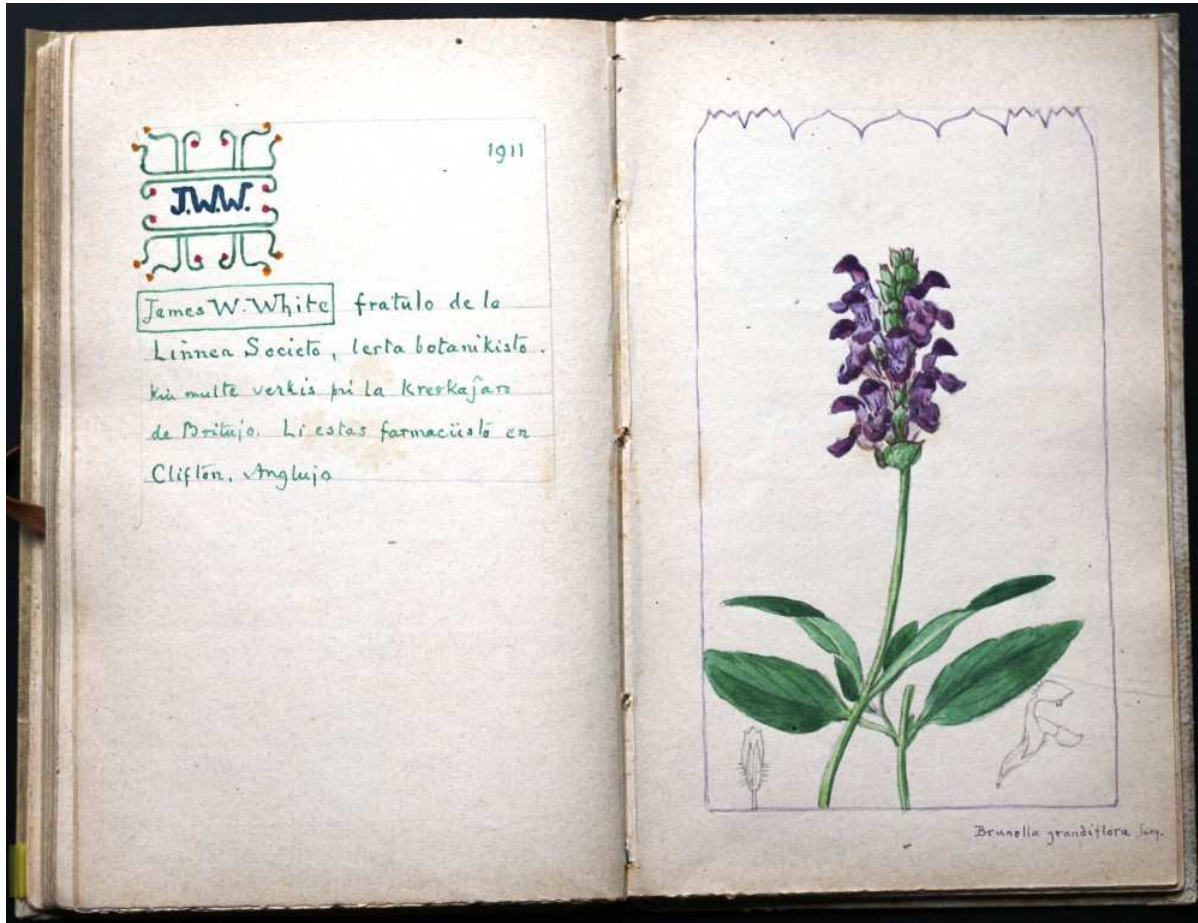 1911
J.W.W.
James W. White fratulo de la
Linnea Societo, lerta botanikisto.
kiu multe verkis pri la kreskaĵaro
de Britujo. Li estas farmaciisto en
Clifton, Anglujo
Brunella grandiflora